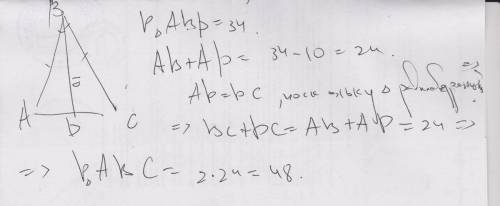 B
A D C
10
P△ABD = 34.
AB + AD = 34 - 10 = 24.
AD = DC, поскольку △ равнобедренный =>
=> BC + DC = AB + AD = 24 =>
=> P△ABC = 2 · 24 = 48.